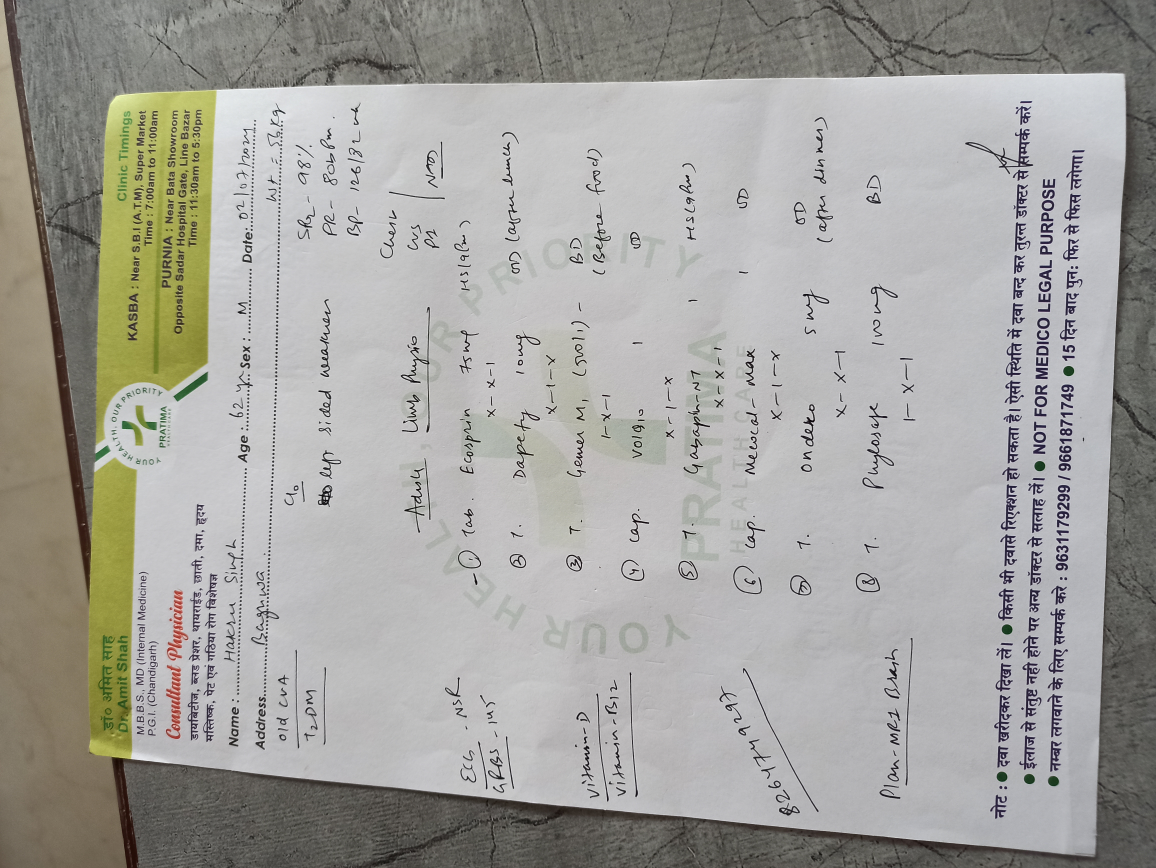 डॉ० अमित साह
Dr. Amit Shah
M.B.B.S., MD (Internal Medicine)
P.G.I. (Chandigarh)
Consultant Physician
डायबिटीज, ब्लड प्रेशर, थायराईड, छाती, दमा, हृदय
मस्तिष्क, पेट एवं गठिया रोग विशेषज्ञ
YOUR HEALTH, OUR PRIORITY
PRATIMA
HEALTH CARE
Clinic Timings
KASBA : Near S.B.I (A.T.M), Super Market
Time : 7:00am to 11:00am
PURNIA : Near Bata Showroom
Opposite Sadar Hospital Gate, Line Bazar
Time : 11:30am to 5:30pm
Name : Hakru Singh Age : 62 yr Sex : M Date: 02/07/2024
Address Baginwa Wt = 56 kg
old CVA
T2DM
C/o
left sided weakness
98%
PR - 80 bpm.
BP - 126/82
Chest
CVS
NAD
Advice Limb Physio
ECG - NSR
GRBS - 145
① Tab. Ecosprin 75mg HS (9pm)
x-x-1
② T. Dapefy 10mg OD (after lunch)
x-1-x
③ T. Gemer M1 (500/1) - BD
1-x-1 (Before food)
Vitamin-D
Vitamin-B12
④ Cap. Volq10 1 OD
x-1-x
⑤ T. Gabaph-NT 1 HS (9pm)
x-x-1
⑥ Cap. Mecocal-Max 1 OD
x-1-x
⑦ T. 5mg OD
x-x-1 (after dinner)
⑧ T. 100mg BD
1-x-1
Plan - MRI Brain
YOUR HEALTH, OUR PRIORITY
PRATIMA
HEALTH CARE
नोट : ● दवा खरीदकर दिखा लें। ● किसी भी दवासे रिएक्शन हो सकता है। ऐसी स्थिति में दवा बन्द कर तुरन्त डॉक्टर से सम्पर्क करें।
● ईलाज से संतुष्ट नही होने पर अन्य डॉक्टर से सलाह लें। ● NOT FOR MEDICO LEGAL PURPOSE
● नम्बर लगावाने के लिए सम्पर्क करे : 9631179299 / 9661871749 ● 15 दिन बाद पुन: फिर से फिस लगेगा।